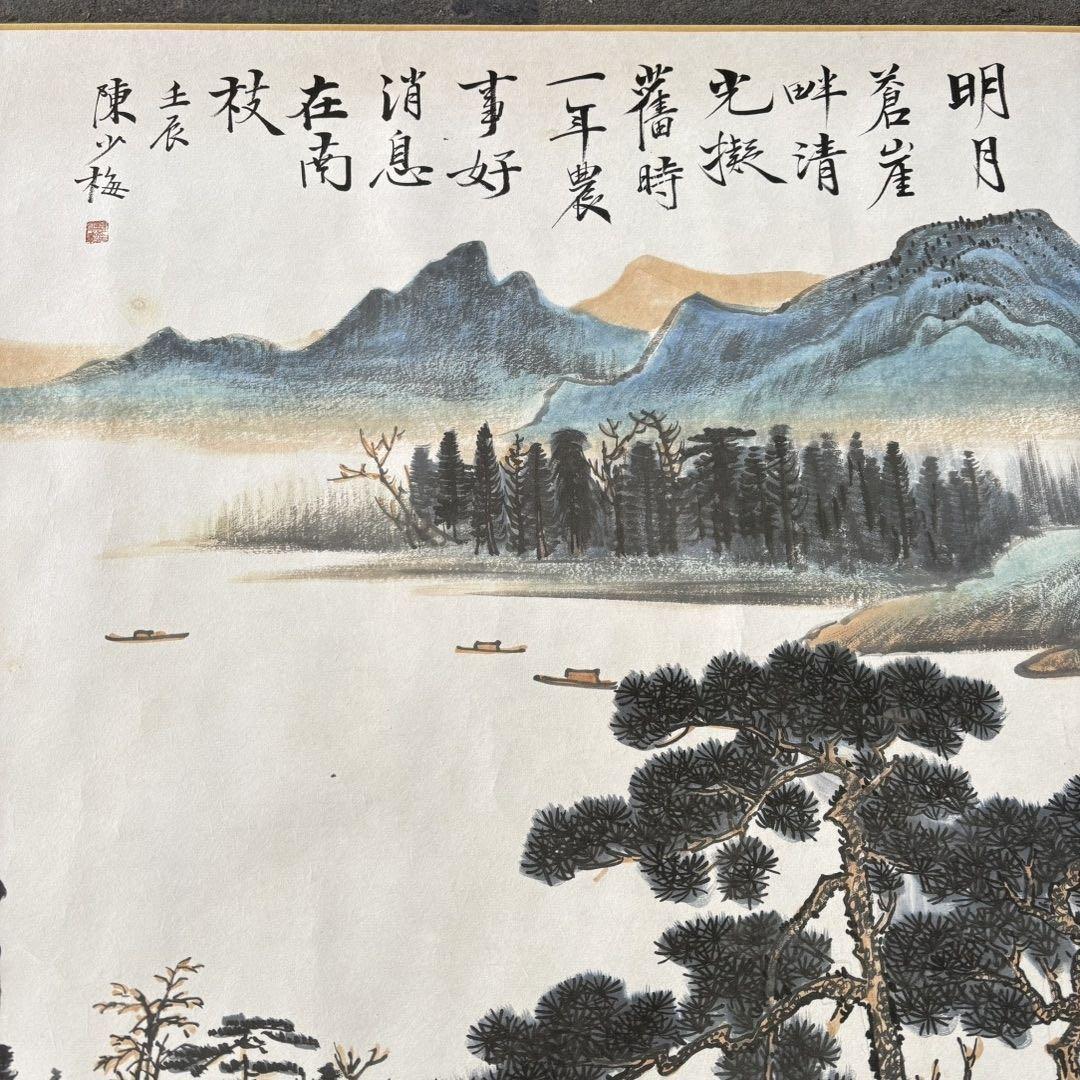 明月
蒼崖
畔清
光擬
舊時
一年農
事好
消息
在南
枝
壬辰
陳少梅